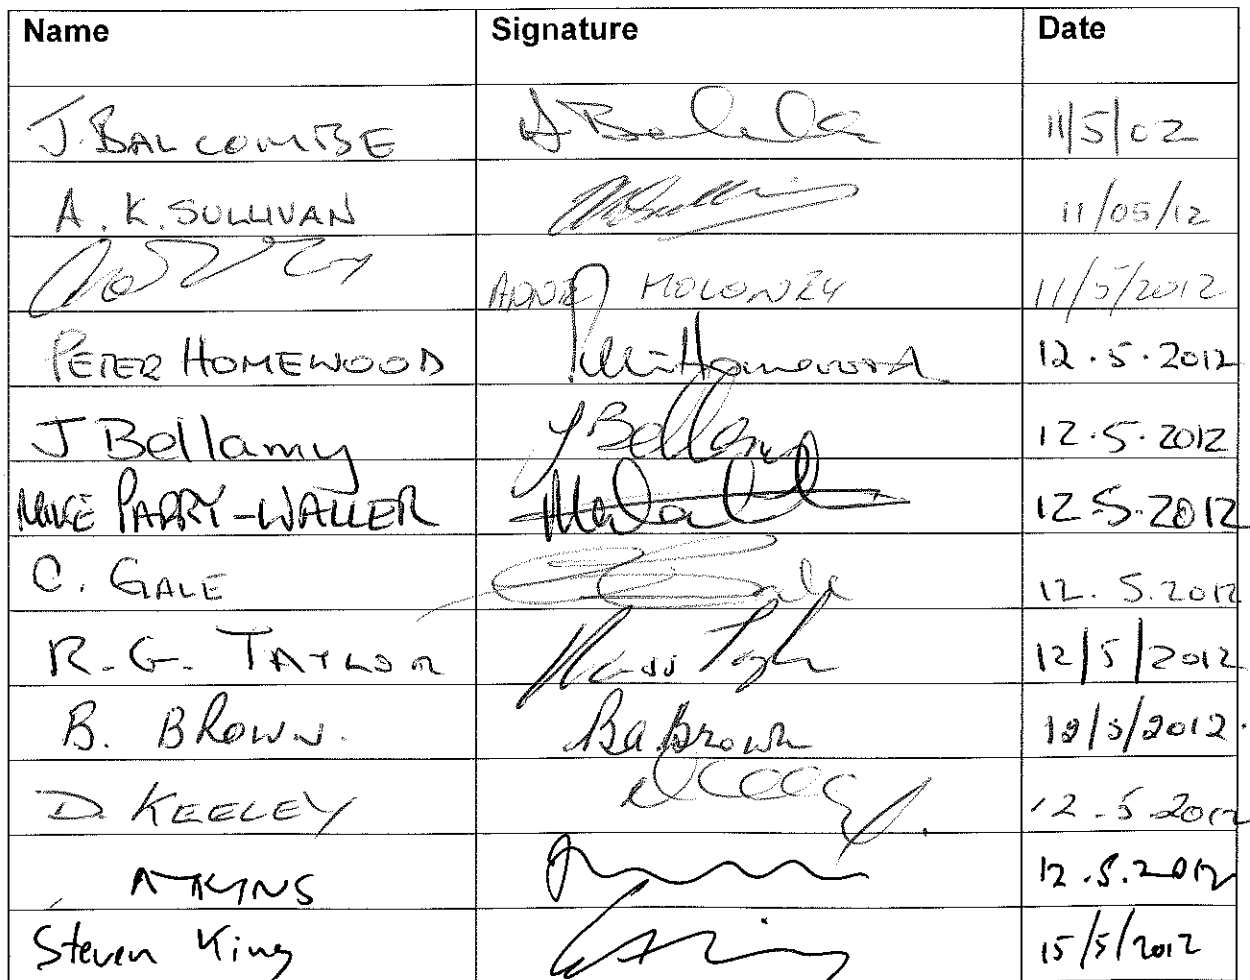 Name Signature Date
J. BALCOMBE 11/5/02
A. K. SULLIVAN 11/05/12
MOLONEY 11/5/2012
PETER HOMEWOOD Homewood 12.5.2012
J Bellamy J Bellamy 12.5.2012
MIKE PARRY-WALLER 12.5.2012
C. GALE Gale 12.5.2012
R.G. TAYLOR 12/5/2012
B. BROWN. Ba Brown 12/5/2012.
D. KEELEY 12.5.2012
ATKINS 12.5.2012
Steven King 15/5/2012